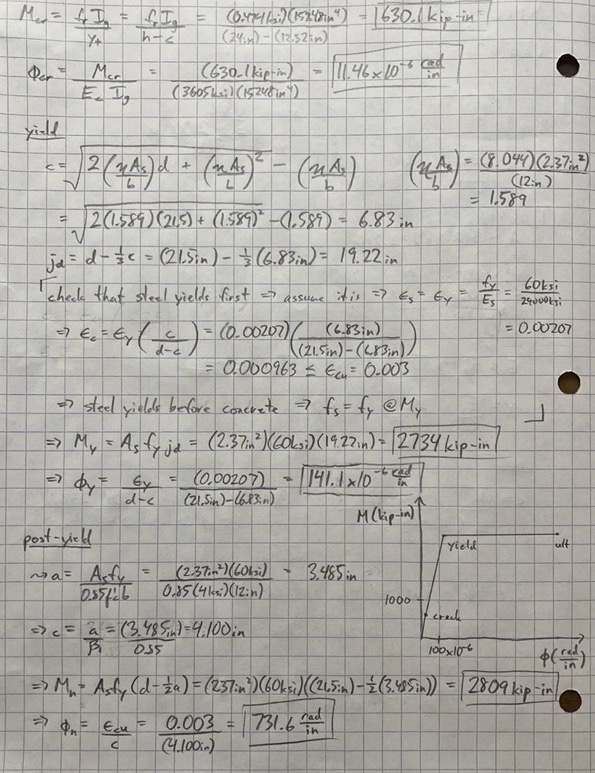 M_cr = f_r I_g / y_t = f_r I_g / (h-c) = (0.474ksi)(15248in⁴) / ((24in)-(12.52in)) = 630.1 kip-in
Φ_cr = M_cr / (E_c I_g) = (630.1kip-in) / ((3605ksi)(15248in⁴)) = 11.46×10⁻⁶ rad/in
yield
c = √(2(nA_s/b)d + (nA_s/b)²) - (nA_s/b) (nA_s/b) = (8.044)(2.37in²) / (12in)
= 1.589
= √(2(1.589)(21.5) + (1.589)²) - (1.589) = 6.83 in
jd = d - ⅓c = (21.5in) - ⅓(6.83in) = 19.22 in
check that steel yields first ⇒ assume it is ⇒ ε_s = ε_y = f_y/E_s = 60ksi/29000ksi
= 0.00207
⇒ ε_c = ε_y (c/(d-c)) = (0.00207)((6.83in) / ((21.5in)-(6.83in)))
= 0.000963 ≤ ε_cu = 0.003
⇒ steel yields before concrete ⇒ f_s = f_y @ M_y
⇒ M_y = A_s f_y jd = (2.37in²)(60ksi)(19.22in) = 2734 kip-in
⇒ ϕ_y = ε_y/(d-c) = (0.00207) / ((21.5in)-(6.83in)) = 141.1×10⁻⁶ rad/in
M(kip-in)
yield
ult
1000
crack
100×10⁻⁶
ϕ(rad/in)
post-yield
~> a = A_s f_y / (0.85f'c b) = (2.37in²)(60ksi) / (0.85(4ksi)(12in)) = 3.485 in
⇒ c = a/β₁ = (3.485in)/0.85 = 4.100in
⇒ M_n = A_s f_y (d - ½a) = (2.37in²)(60ksi)((21.5in) - ½(3.485in)) = 2809 kip-in
⇒ ϕ_n = ε_cu/c = 0.003/(4.100in) = 731.6 rad/in